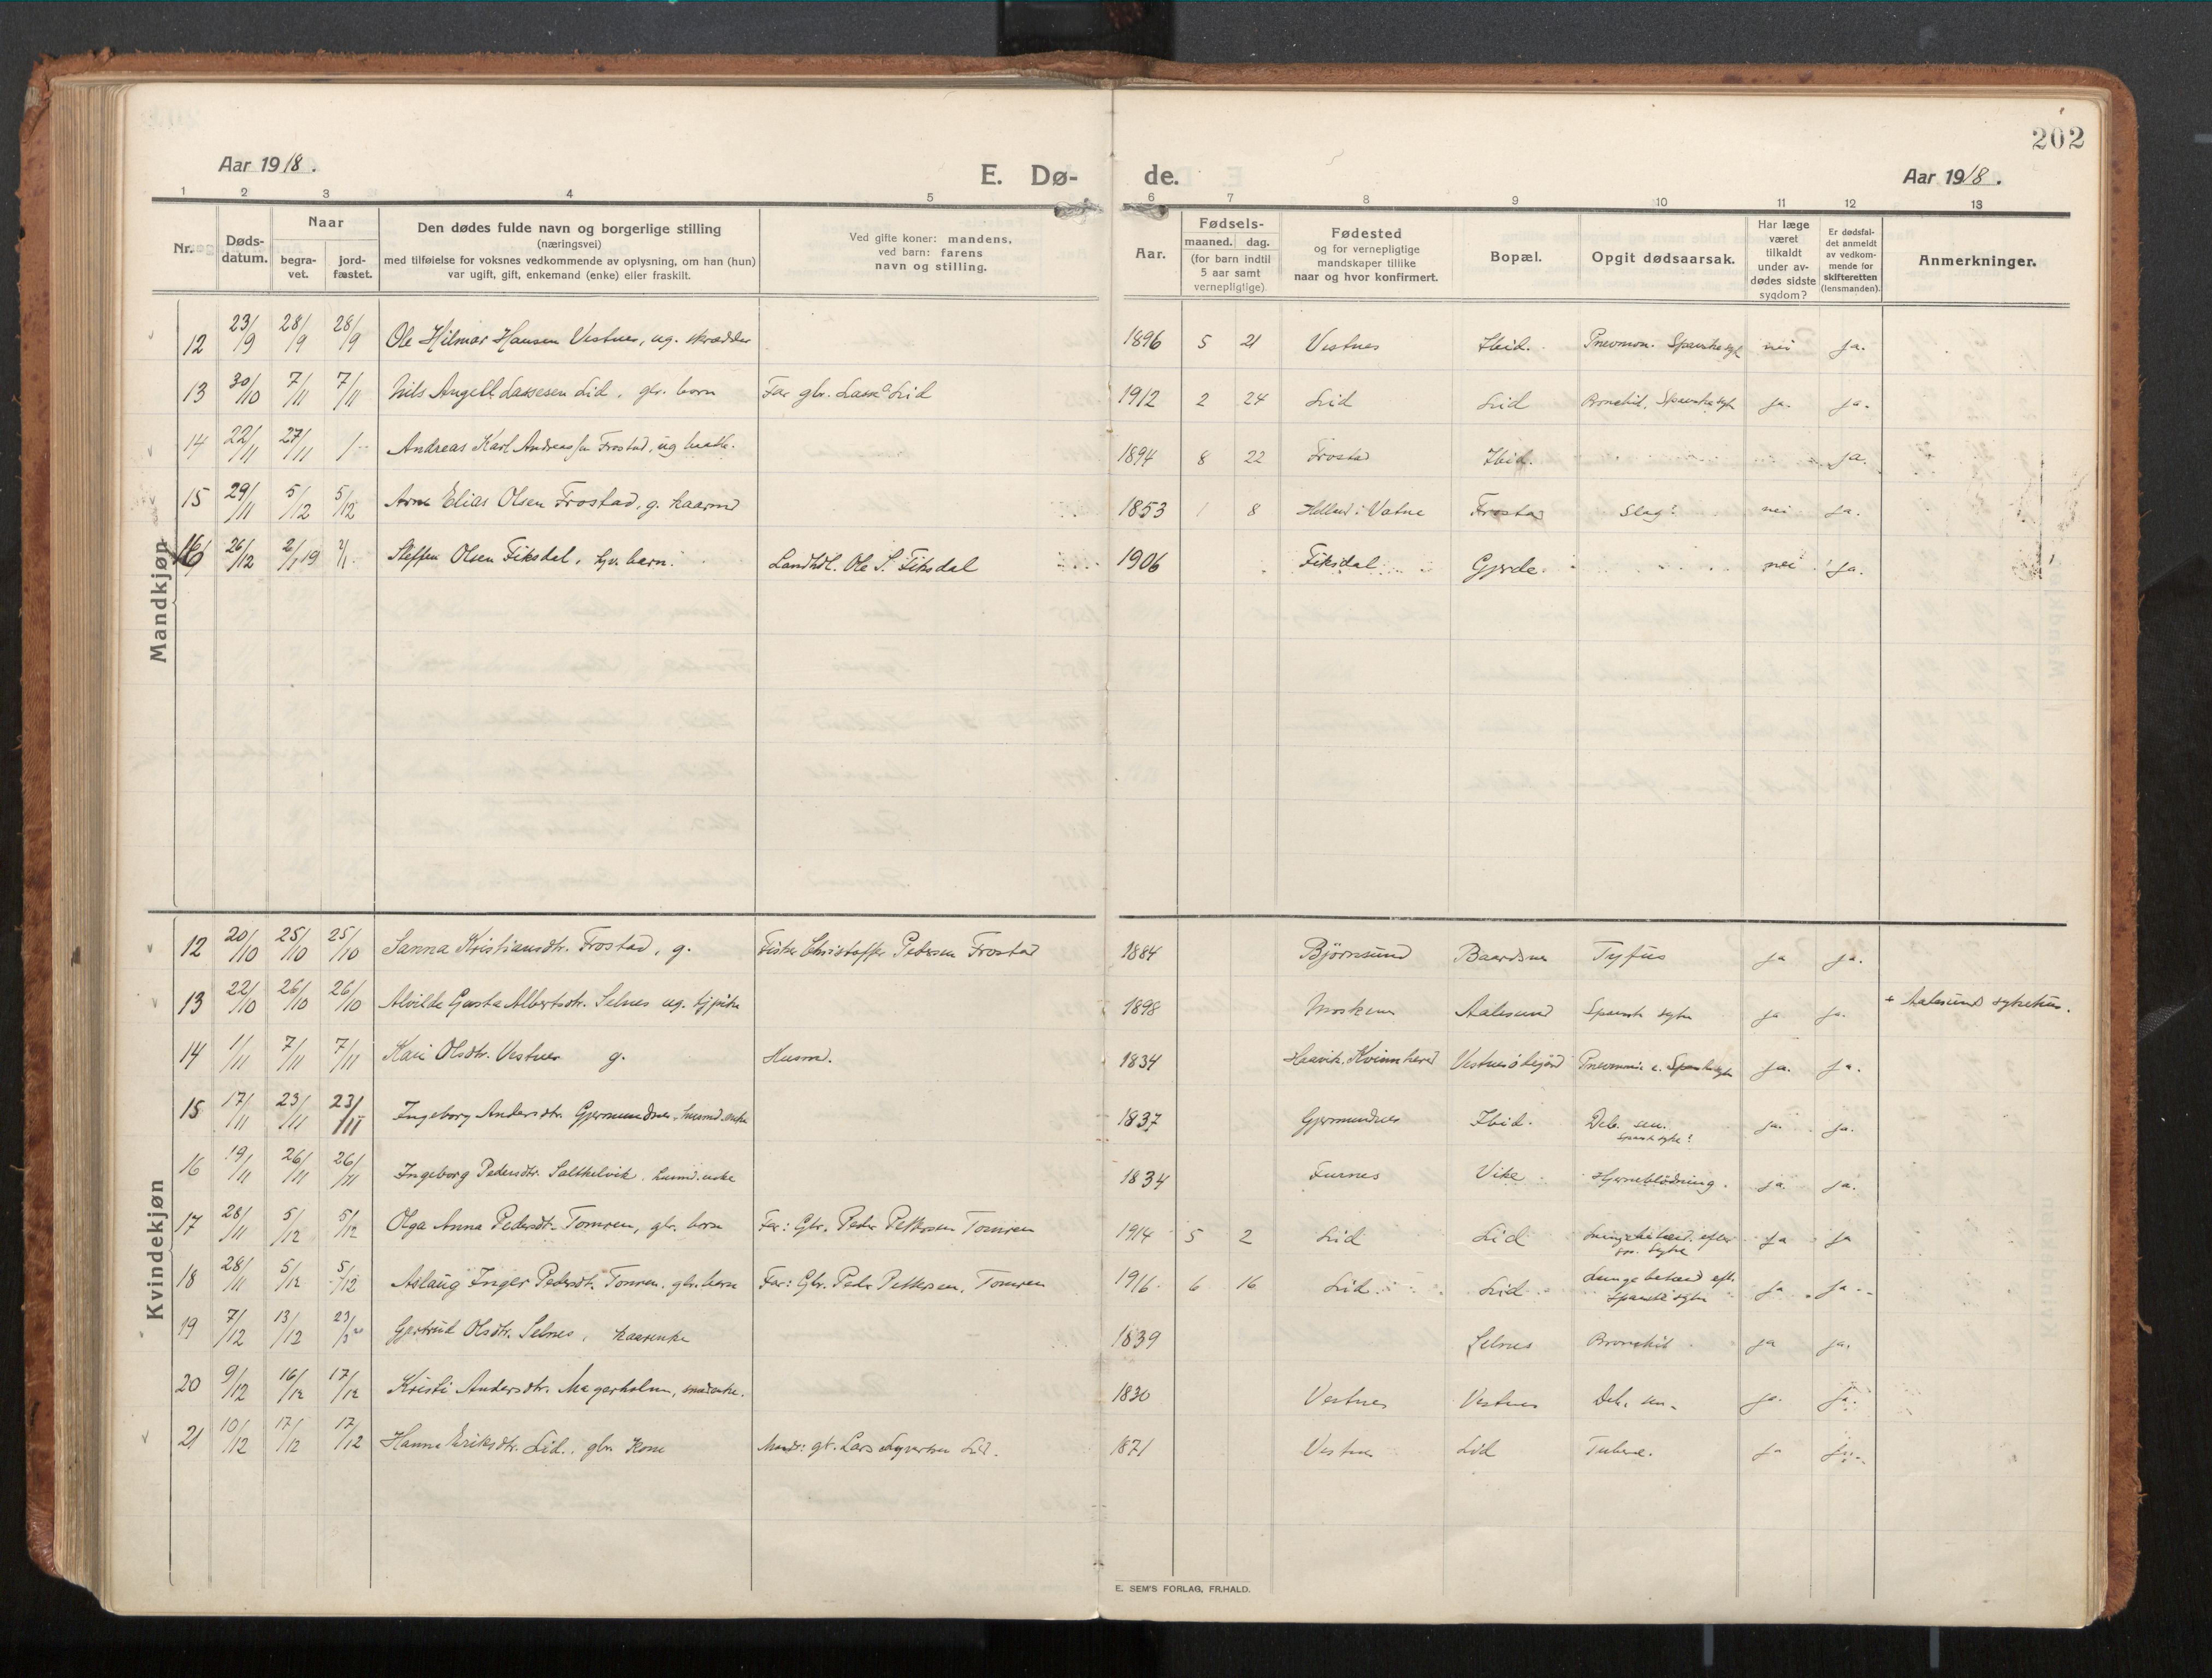 202
Aar 1918.
E. Dø- de.
Aar 1918.
1 2 3 4 5 6 7 8 9 10 11 12 13
Nr.
Døds-
datum.
Naar
begra-
vet.
jord-
fæstet.
Den dødes fulde navn og borgerlige stilling
(næringsvei)
med tilføielse for voksnes vedkommende av oplysning, om han (hun)
var ugift, gift, enkemand (enke) eller fraskilt.
Ved gifte koner: mandens,
ved barn: farens
navn og stilling.
Aar.
Fødsels-
maaned. dag.
(for barn indtil
5 aar samt
vernepligtige)
Fødested
og for vernepligtige
mandskaper tillike
naar og hvor konfirmert.
Bopæl.
Opgit dødsaarsak.
Har læge
været
tilkaldt
under av-
dødes sidste
sygdom?
Er dødsfal-
det anmeldt
av vedkom-
mende for
skifteretten
(lensmanden).
Anmerkninger.
Mandkjøn
12 23/9 28/9 28/9 Ole Hilmar Hansen Vestnes, ug. skrædder 1896 5 21 Vestnes Ibid. Pneumon. Spanskesyk nei ja.
13 30/10 7/11 7/11 Nils Angell Lassesen Lid, gbr. barn Far gbr. Lasse Lid 1912 2 24 Lid Lid Bronchit, Spanskesyke ja. ja.
14 22/11 27/11 Andreas Karl Andreassen Frostad, ug. 1894 8 22 Frostad Ibid. ja.
15 29/11 5/12 5/12 Elias Olsen Frostad, g. kaarmd 1853 1 8 Helland i Vatne Frostad Slag? nei ja.
16 26/12 2/1 19 2/1 Steffen Olsen Fiksdal, barn. Landhdl. Ole S. Fiksdal 1906 Fiksdal Gjerde. nei ja.
Kvindekjøn
12 20/10 25/10 25/10 Sanna Kristiansdtr. Frostad, g. Fisker Christoffer Pedersen Frostad 1884 Bjørnsund Baardsnes Tyfus ja ja.
13 22/10 26/10 26/10 Alvilde Gusta Albertsdtr. Selnes ug. 1898 Aalesund Spansk syke ja ja. + Aalesunds sykehus.
14 1/11 7/11 7/11 Kari Olsdtr. Vestnes g. Husmd. 1834 Kvinnhered Pneumoni e. Spanskesyke ja. ja.
15 17/11 23/11 23/11 Ingeborg Andersdtr. Gjermundnes, husmd.enke 1837 Gjermundnes Ibid. Deb. sen.
Spansk syke? ja. ja.
16 19/11 26/11 26/11 Ingeborg Pedersdtr. Saltkelvik, husmd.enke 1834 Furnes Vike Hjerneblødning. ja. ja.
17 28/11 5/12 5/12 Olga Anna Pedersdtr. Tomren, gbr. barn Far: Gbr. Peder Pettersen Tomren 1914 5 2 Lid Lid Lungebetænd. efter
sp. syke ja ja
18 28/11 5/12 5/12 Aslaug Inger Pedersdtr. Tomren, gbr. barn Far: Gbr. Peder Pettersen, Tomren 1916 6 16 Lid. Lid Lungebetænd eft.
Spanske syke ja ja
19 7/12 13/12 23/3 Gjertrud Olsdtr. Selnes, kaarenke 1839 Selnes Bronchit ja ja.
20 9/12 16/12 17/12 Kristi Andersdtr. Magerholm, 1830 Vestnes Vestnes Deb. sen. ja. ja.
21 10/12 17/12 17/12 Hanna Eriksdtr. Lid, gbr. kone Mand: gb. Lars Syvertsen Lid. 1871 Vestnes Lid Tuberc. ja ja.
E. SEM'S FORLAG, FR.HALD.